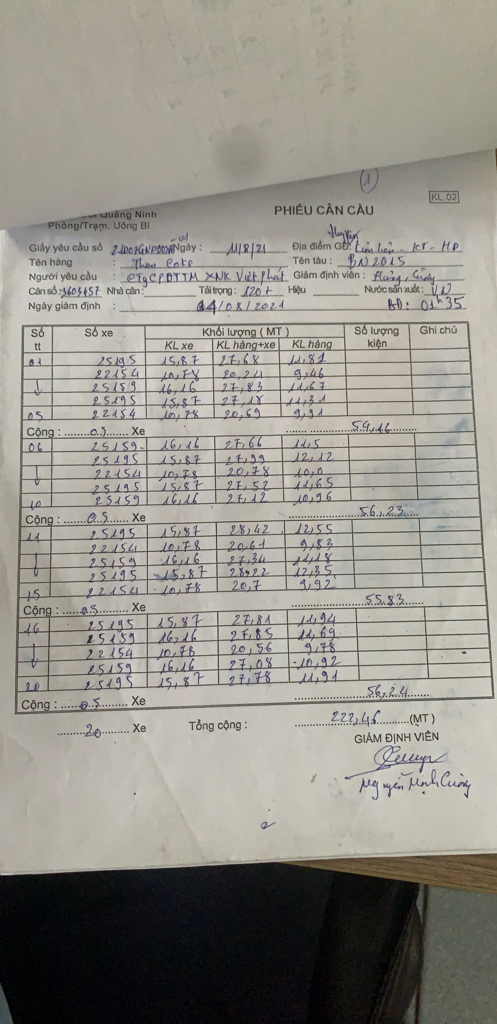 ①
KL.02
Quảng Ninh
Phòng/Trạm: Uông Bí
PHIẾU CÂN CẦU
Giấy yêu cầu số Ngày: 11/8/21 Địa điểm GĐ: - KT - HP
Tên hàng : Than Coke Tên tàu : BN2015
Người yêu cầu : CTyCPĐTTM XNK Việt Phát Giám định viên : Hưng, Cường
Cân số: 3603457 Nhà cân: Tải trọng: 120T Hiệu Nước sản xuất: VN
Ngày giám định : 14/08/2021 BĐ: 01h35
Số tt Số xe Khối lượng ( MT ) Số lượng kiện Ghi chú
KL xe KL hàng+xe KL hàng
01 25195 15,87 27,68 11,81
22154 10,78 20,24 9,46
↓ 25159 16,16 27,83 11,67
25195 15,87 27,18 11,31
05 22154 10,78 20,69 9,91
Cộng : 05 Xe 54,16
06 25159 16,16 27,66 11,5
25195 15,87 27,99 12,12
↓ 22154 10,78 20,78 10,0
25195 15,87 27,52 11,65
10 25159 16,16 27,12 10,96
Cộng : 05 Xe 56,23
11 25195 15,87 28,42 12,55
22154 10,78 20,61 9,83
↓ 25159 16,16 27,34 11,18
25195 15,87 28,22 12,35
15 22154 10,78 20,7 9,92
Cộng : 05 Xe 55,83
16 25195 15,87 27,81 11,94
25159 16,16 27,85 11,69
↓ 22154 10,78 20,56 9,78
25159 16,16 27,08 10,92
20 25195 15,87 27,78 11,91
Cộng : 05 Xe 56,24
20 Xe Tổng cộng : 222,46 (MT )
GIÁM ĐỊNH VIÊN
Nguyễn Mạnh Cường